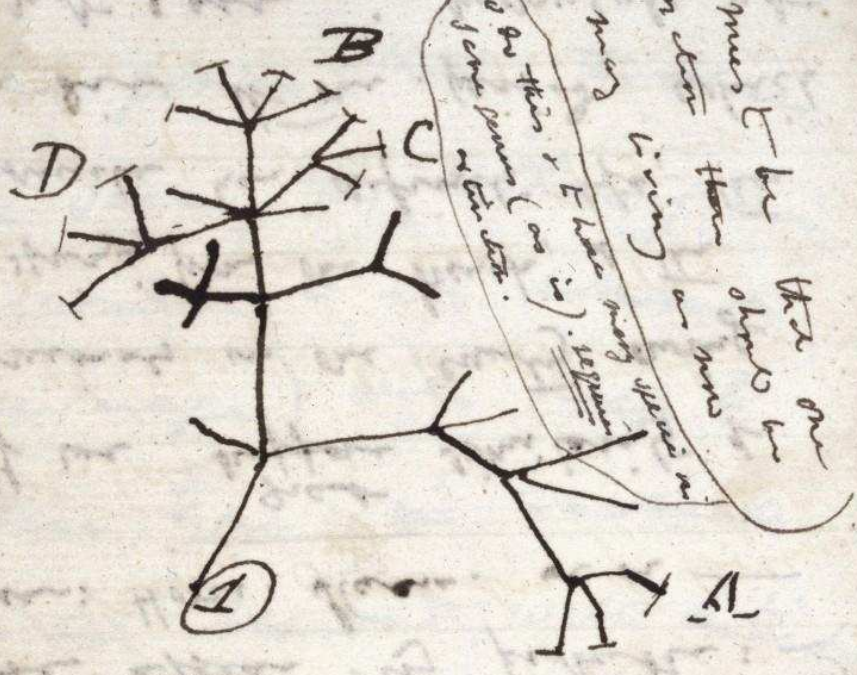 must be that one
then should be
living as now
do this & to have many species in
same genus (as is). requires
extinction.
B
D
C
1
A